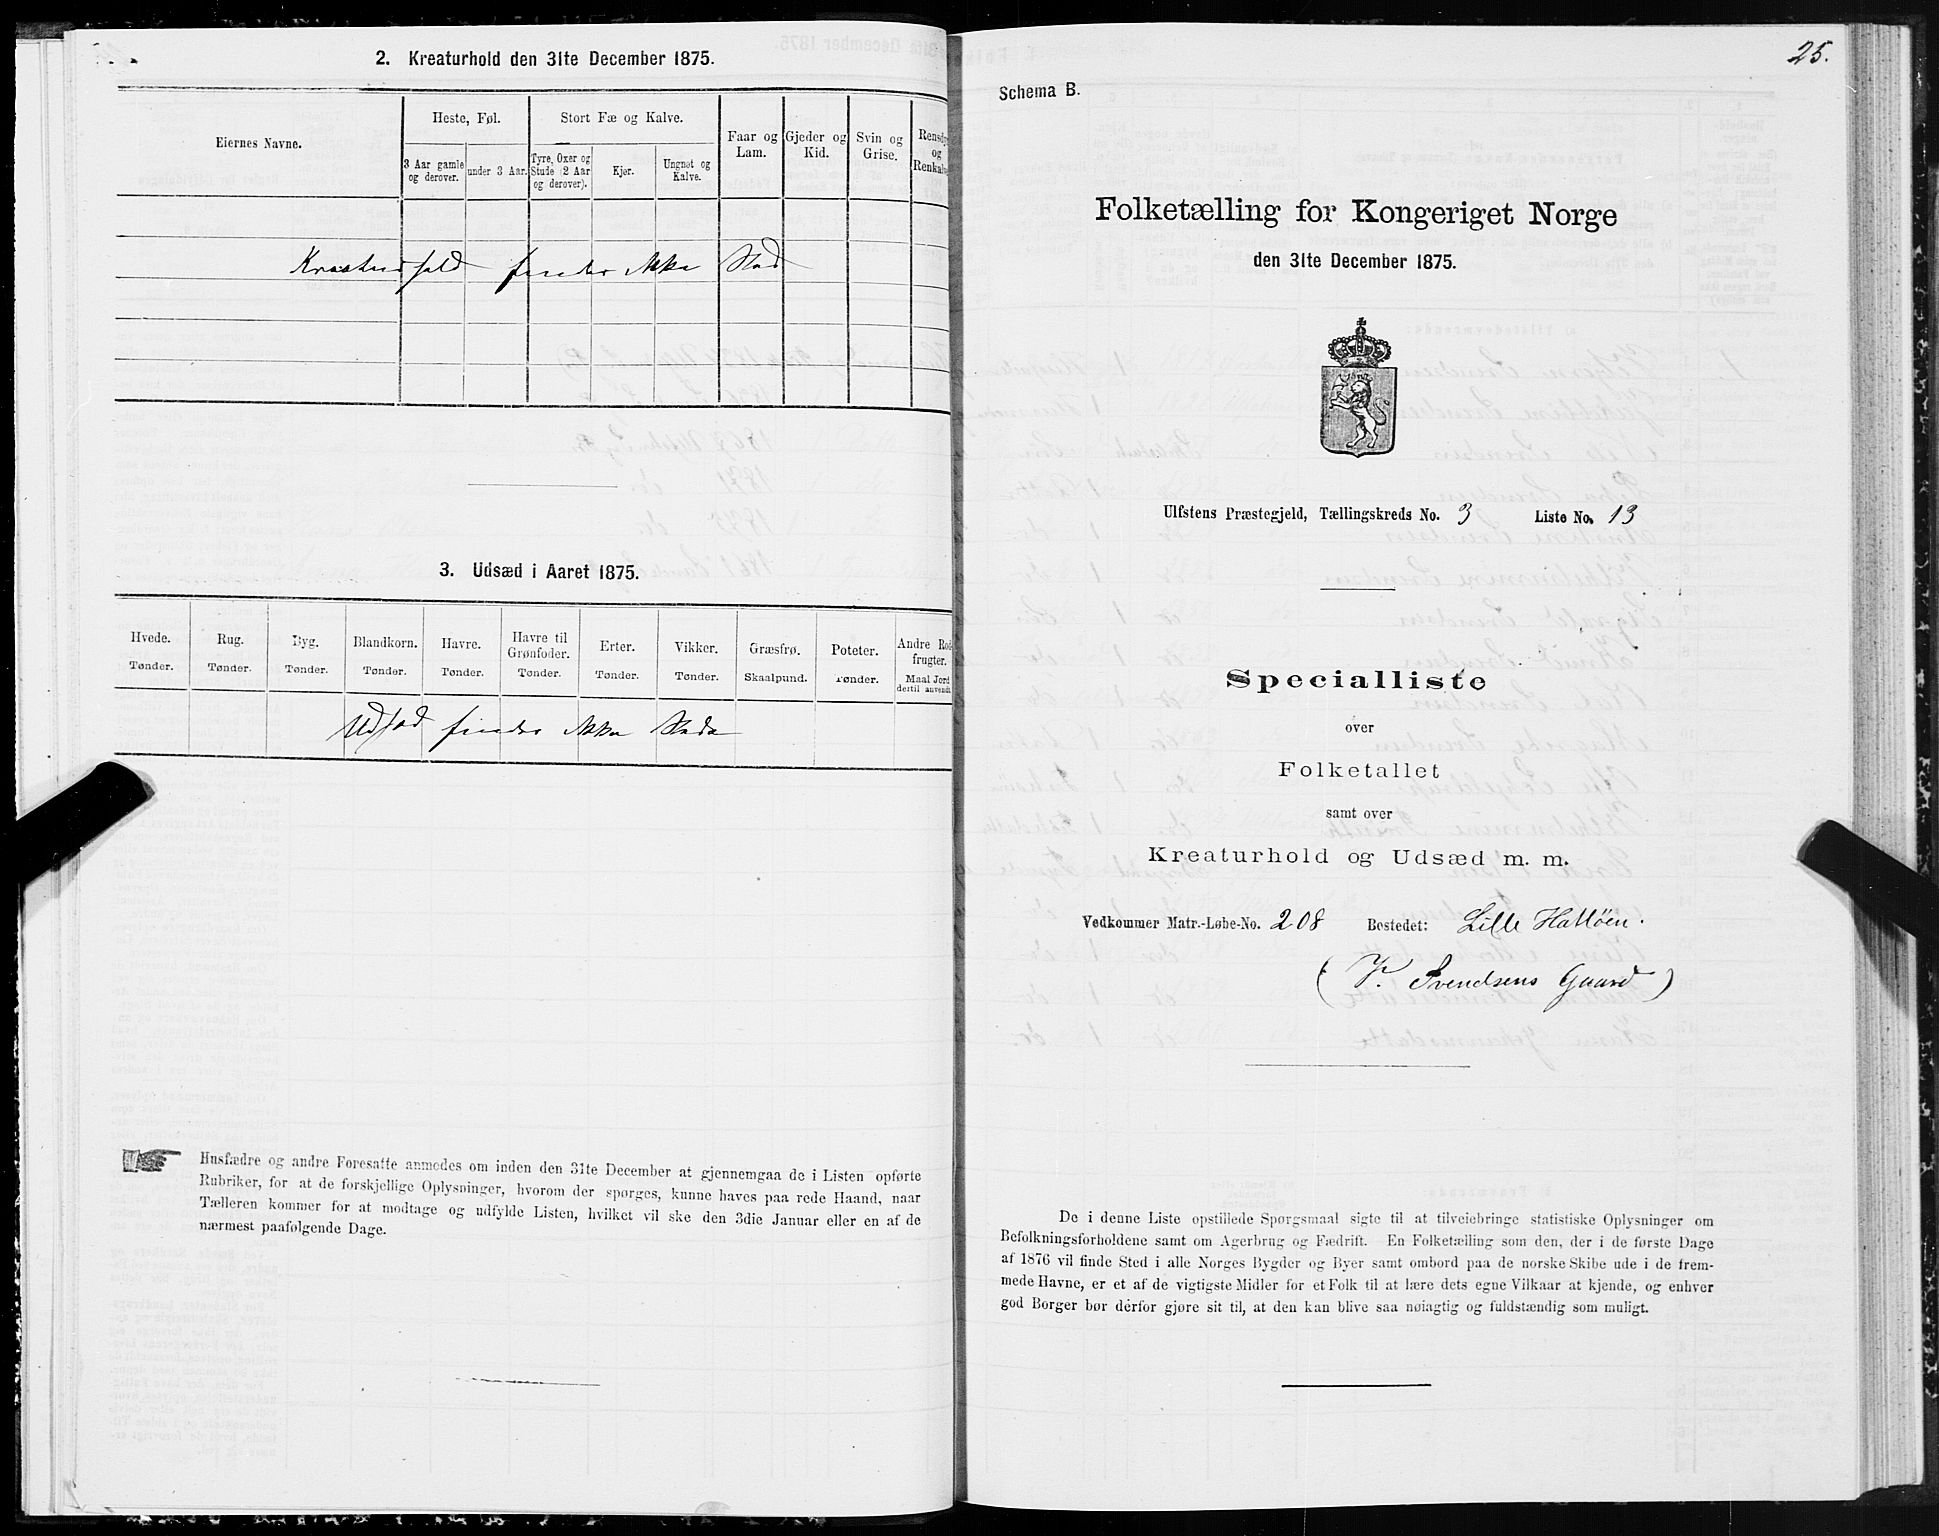 2. Kreaturhold den 31te December 1875.
Eiernes Navne.
Heste, Føl.
Stort Fæ og Kalve.
Faar og Lam.
Gjeder og Kid.
Svin og Grise.
Rensdyr og Renkalve
3 Aar gamle og derover.
under 3 Aar.
Tyre, Oxer og Stude (2 Aar og derover).
Kjør.
Ungnøt og Kalve.
Kreaturhold finder ikke Sted
3. Udsæd i Aaret 1875.
Hvede. Rug. Byg. Blandkorn. Havre. Havre til Grønfoder. Erter. Vikker. Græsfrø. Poteter. Andre Rodfrugter.
Tønder. Tønder. Tønder. Tønder. Tønder. Tønder. Tønder. Tønder. Skaalpund. Tønder. Maal Jord dertil anvendt
Udsæd finder ikke Sted
Husfædre og andre Foresatte anmodes om inden den 31te December at gjennemgaa de i Listen opførte
Rubriker, for at de forskjellige Oplysninger, hvorom der spørges, kunne haves paa rede Haand, naar
Tælleren kommer for at modtage og udfylde Listen, hvilket vil ske den 3die Januar eller en af de
nærmest paafølgende Dage.
25.
Schema B.
Folketælling for Kongeriget Norge
den 31te December 1875.
Ulfstens Præstegjeld, Tællingskreds No. 3 Liste No. 13
Specialliste
over
Folketallet
samt over
Kreaturhold og Udsæd m. m.
Vedkommer Matr.-Løbe-No. 208 Bostedet: Lille Hatløen.
(V. Svendsens Gaard)
De i denne Liste opstillede Spørgsmaal sigte til at tilveiebringe statistiske Oplysninger om
Befolkningsforholdene samt om Agerbrug og Fædrift. En Folketælling som den, der i de første Dage
af 1876 vil finde Sted i alle Norges Bygder og Byer samt ombord paa de norske Skibe ude i de frem-
mede Havne, er et af de vigtigste Midler for et Folk til at lære dets egne Vilkaar at kjende, og enhver
god Borger bør derfor gjøre sit til, at den kan blive saa nøiagtig og fuldstændig som muligt.